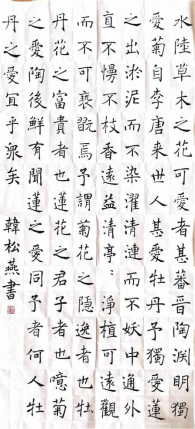 水陸草木之花可愛者甚蕃晉陶淵明獨
愛菊自李唐來世人甚愛牡丹予獨愛蓮
之出淤泥而不染濯清漣而不妖中通外
直不蔓不枝香遠益清亭：淨植可遠觀
而不可褻翫焉予謂菊花之隱逸者也牡
丹花之富貴者也蓮花之君子者也噫菊
之愛陶後鮮有聞蓮之愛同予者何人牡
丹之愛宜乎衆矣
韓松燕書